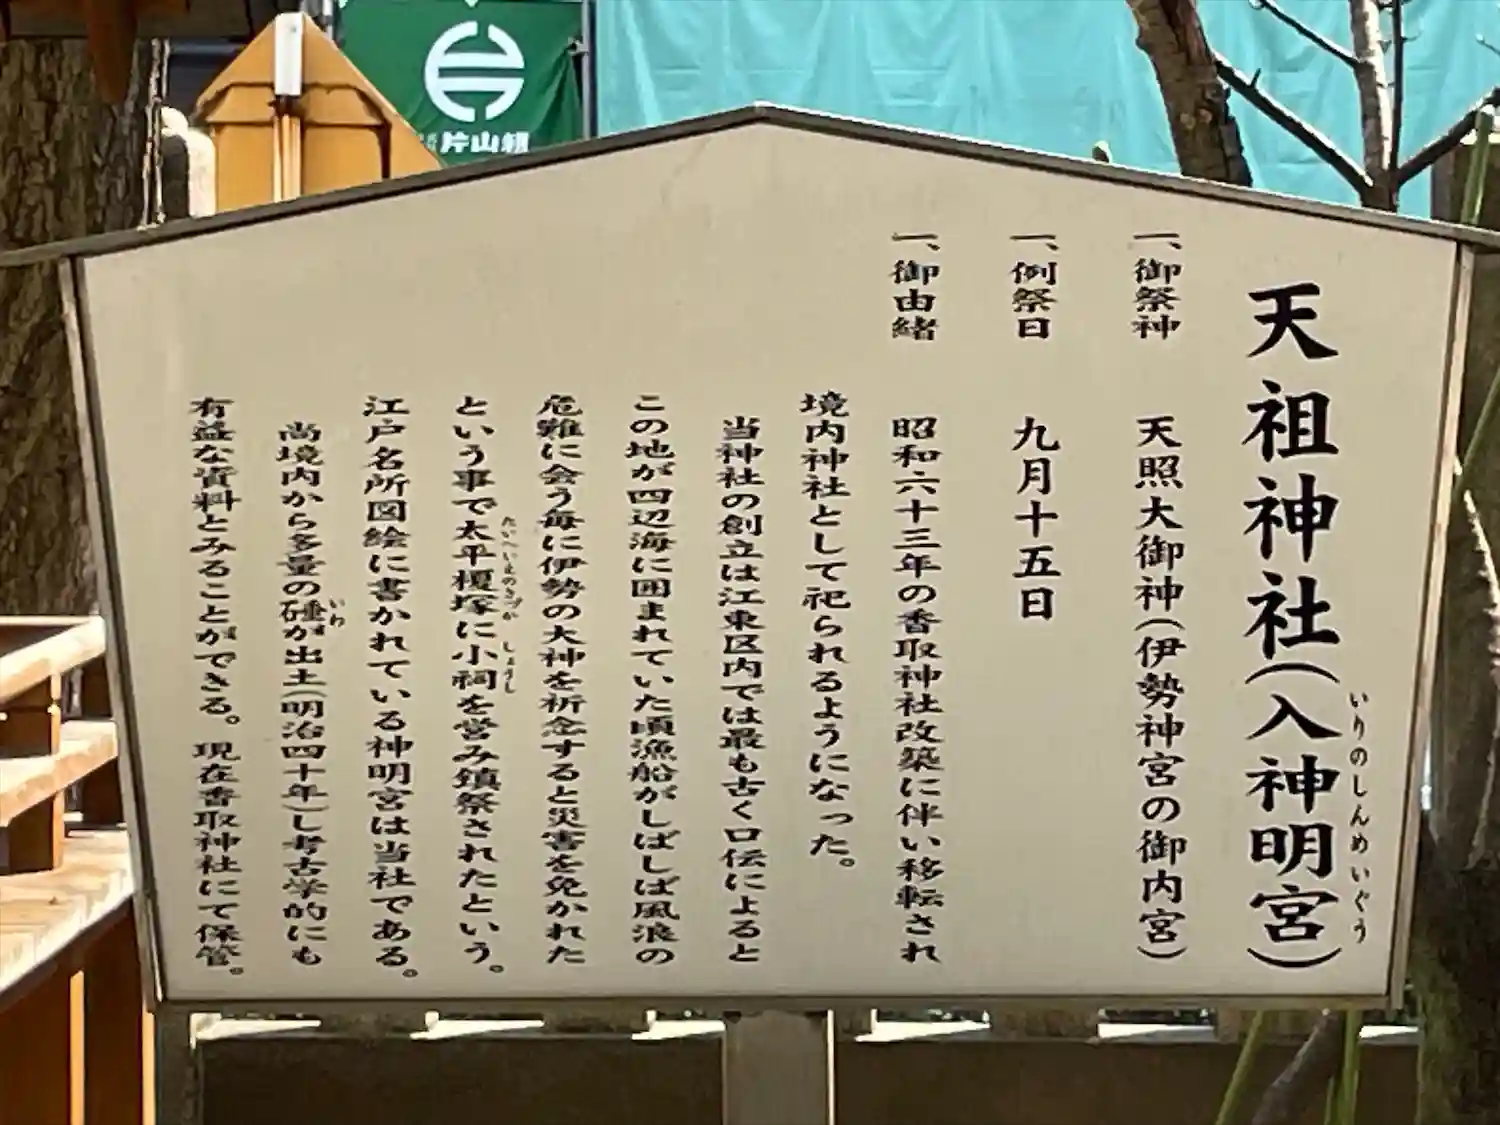 天祖神社(入神明宮)
いりのしんめいぐう
一、御祭神　天照大御神(伊勢神宮の御内宮)
一、例祭日　九月十五日
一、御由緒　昭和六十三年の香取神社改築に伴い移転され
境内神社として祀られるようになった。
当神社の創立は江東区内では最も古く口伝によると
この地が四辺海に囲まれていた頃漁船がしばしば風浪の
危難に会う毎に伊勢の大神を祈念すると災害を免かれた
という事で太平榎塚に小祠を営み鎮祭されたという。
たいへいえのきづか しょうし
江戸名所図絵に書かれている神明宮は当社である。
尚境内から多量の硾が出土(明治四十年)し考古学的にも
いわ
有益な資料とみることができる。現在香取神社にて保管。
片山組